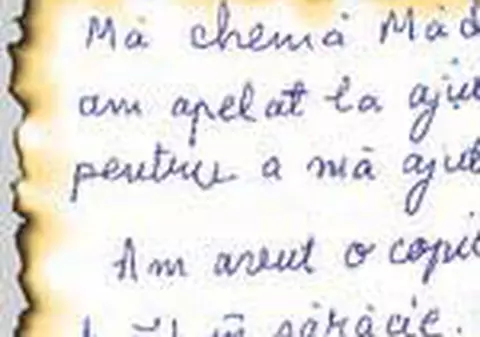 Mă chemă Măd
am apelat la aju
pentru a mă ajut
Am avut o copil
în sărăcie.